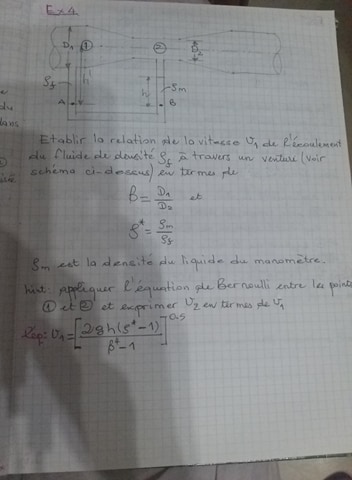 Ex4
D₁ ① ② D₂
ρf h' h ρm
A B
Etablir la relation de la vitesse U₁ de l'écoulement
du fluide de densité ρf à travers un venture (voir
schéma ci-dessus) en termes de
β = D₁/D₂ et
ρ* = ρm/ρf
ρm est la densité du liquide du manomètre.
hint: appliquer l'équation de Bernoulli entre les points
① et ② et exprimer U₂ en termes de U₁
Rep: U₁ = [2gh(ρ*-1)/β⁴-1]^0.5
du
dans